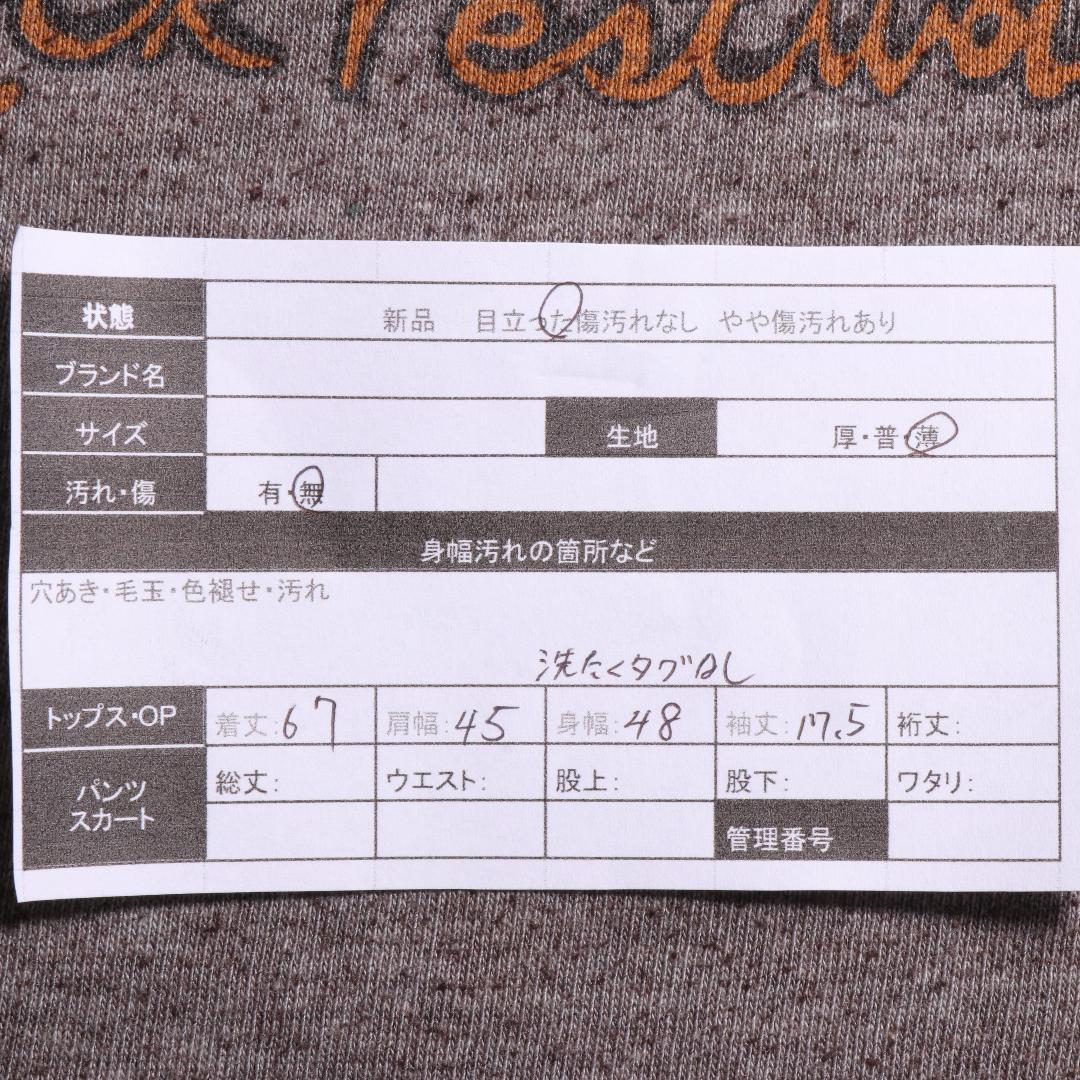 ck Festival
状態 新品 目立った傷汚れなし やや傷汚れあり
ブランド名
サイズ 生地 厚・普・薄
汚れ・傷 有・無
身幅汚れの箇所など
穴あき・毛玉・色褪せ・汚れ
洗たくタグなし
トップス・OP 着丈:67 肩幅:45 身幅:48 袖丈:17.5 裄丈:
パンツ スカート 総丈: ウエスト: 股上: 股下: ワタリ:
管理番号